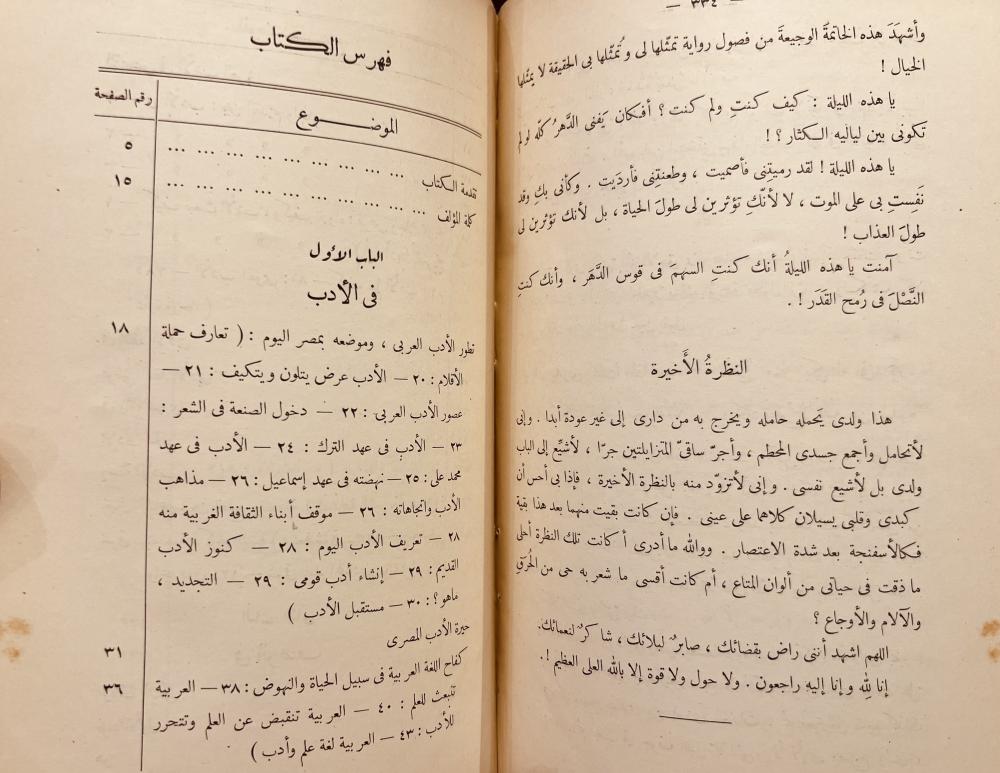 — ٣٣٤ —
وأشهَدَ هذه الخاتمةَ الوجيعةَ من فصول رواية تمثّلها لى وتُمثّلها بى الحقيقة لا يمثّلها
الخيال !
يا هذه الليلة : كيف كنتِ ولم كنت ؟ أفكان يَفنى الدَّهرُ كلّه لو لم
تكونى بين لياليه الكثار ؟ !
يا هذه الليلة ! لقد رميتِنى فأصميت ، وطعنتِنى فأردَيت . وكأنى بكِ وقد
نَفِستِ بى على الموت ، لا لأنّكِ تؤثرين لى طولَ الحياة ، بل لأنك تؤثرين لى
طولَ العذاب !
آمنت يا هذه الليلةُ أنك كنتِ السهمَ فى قوس الدَّهَر ، وأنك كنتِ
النَّصْلَ فى رُمح القَدَر ! .
النظرةُ الأَخيرة
هذا ولدى يَحمله حامله ويخرج به من دارى إلى غير عودة أبدا . وإنى
لأتحامل وأجمع جسدى المحطم ، وأجرّ ساقىّ المتزايلتين جرّا ، لأشيّع إلى الباب
ولدى بل لأشيع نفسى . وإنى لأتزوّد منه بالنظرة الأخيرة ، فإذا بى أحس أن
كبدى وقلبى يسيلان كلاهما على عينى . فإن كانت بقيت منهما بعد هذا بقية
فكالأسفنجة بعد شدة الاعتصار . ووالله ما أدرى أ كانت تلك النظرة أحلى
ما ذقت فى حياتى من ألوان المتاع ، أم كانت أقسى ما شعر به حى من الحُرَق
والآلام والأوجاع ؟
اللهم اشهد أننى راض بقضائك ، صابرٌ لبلائك ، شاكرٌ لنعمائك.
إنا لله و إنا إليه راجعون . ولا حول ولا قوة إلا بالله العلى العظيم !.
فهرس الكتاب
الموضـــــوع رقم الصفحة
تقدمة الكتاب ... ... ... ... ... ... ... ... ... ٥
كلمة المؤلف ... ... ... ... ... ... ... ... ... ... ١٥
الباب الأول
فى الأدب
تطور الأدب العربى ، وموضعه بمصر اليوم : ( تعارف حملة ١٨
الأقلام : ٢٠ — الأدب عرض يتلون ويتكيف : ٢١ —
عصور الأدب العربى : ٢٢ — دخول الصنعة فى الشعر :
٢٣ — الأدب فى عهد الترك : ٢٤ — الأدب فى عهد
محمد على : ٢٥ — نهضته فى عهد إسماعيل : ٢٦ — مذاهب
الأدب واتجاهاته : ٢٦ — موقف أبناء الثقافة الغربية منه
٢٨ — تعريف الأدب اليوم : ٢٨ — كنوز الأدب
القديم : ٢٩ — إنشاء أدب قومى : ٢٩ — التجديد ،
ماهو ؟ : ٣٠ — مستقبل الأدب )
حيرة الأدب المصرى ٣١
كفاح اللغة العربية فى سبيل الحياة والنهوض : ٣٨ — العربية ٣٦
تبعث للعلم : ٤٠ — العربية تنقبض عن العلم وتتحرر
للأدب : ٤٣ — العربية لغة علم وأدب )